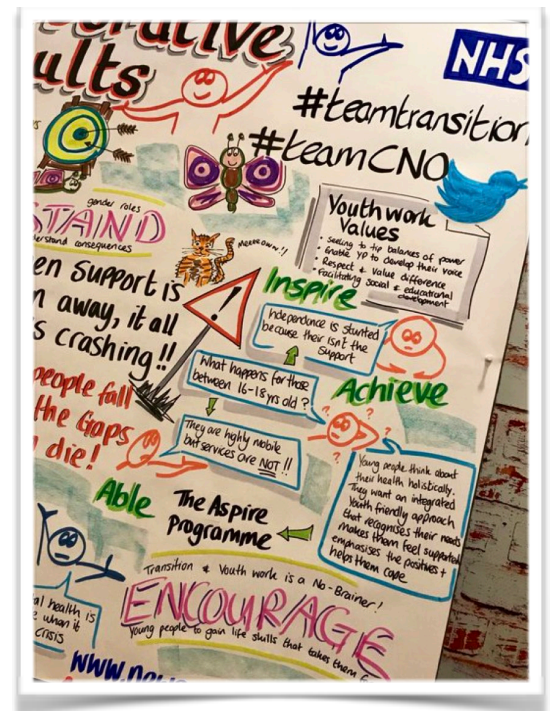 ults
NHS
#teamtransition
#teamCNO
gender roles
STAND
derstand consequences
MEEEEOWN!!
Youthwork
Values
• Seeking to tip balances of power
• Enable YP to develop their voice
• Respect & Value difference
• Facilitating Social & educational
development
en Support is
n away, it all
s crashing!!
!
people fall
the Gaps
die!
Inspire
Independence is stunted
because their isn't the
Support
What happens for those
between 16-18 yrs old?
Achieve
? ? ? ?
They are highly mobile
but services are NOT!!
Young people think about
their health holistically.
They want an integrated
Youth friendly approach
that recognises their needs
makes them feel supported
emphasises the positives +
helps them cope
Able
The Aspire
Programme
Transition & Youth work is a No-Brainer!
ENCOURAGE
Young people to gain life skills that takes them
al health is
when it
crisis
www.